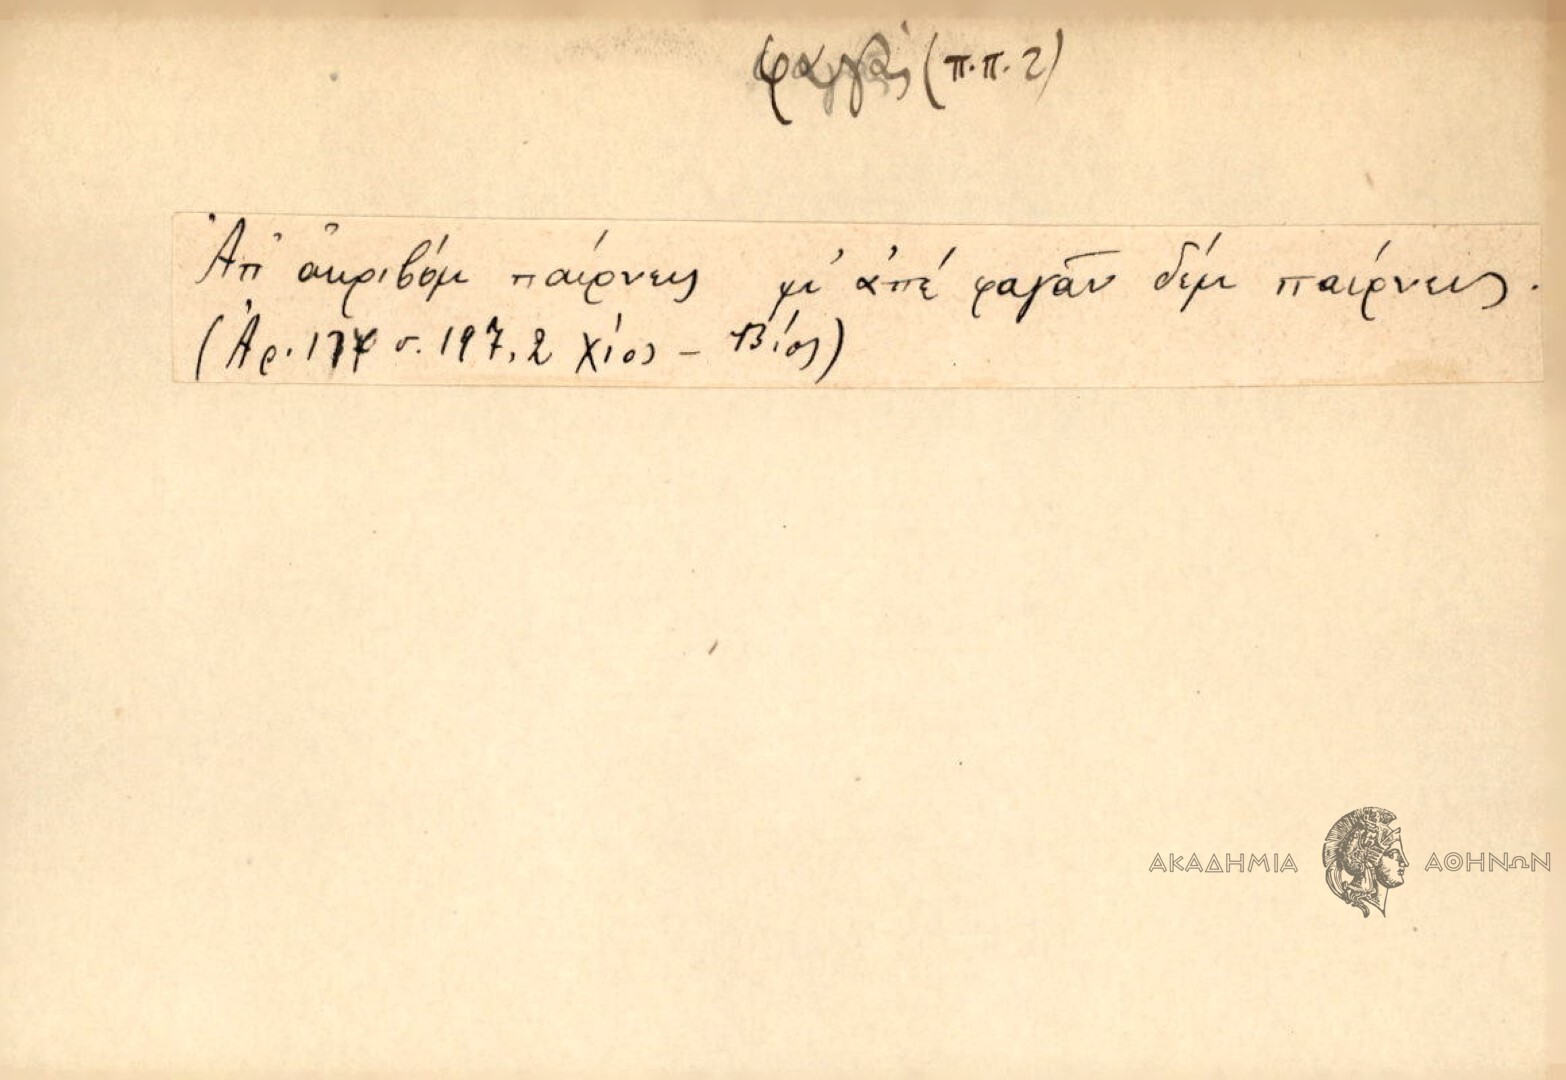 φαγᾶς (π.π. 2)
Ἀπ' ἀκριβόμ παίρνεις μὶ ἀπέ φαγᾶν δέμ παίρνεις.
(Ἀρ. 174 σ. 197, 2 Χίος – Βίος)
ΑΚΑΔΗΜΙΑ ΑΘΗΝΩΝ